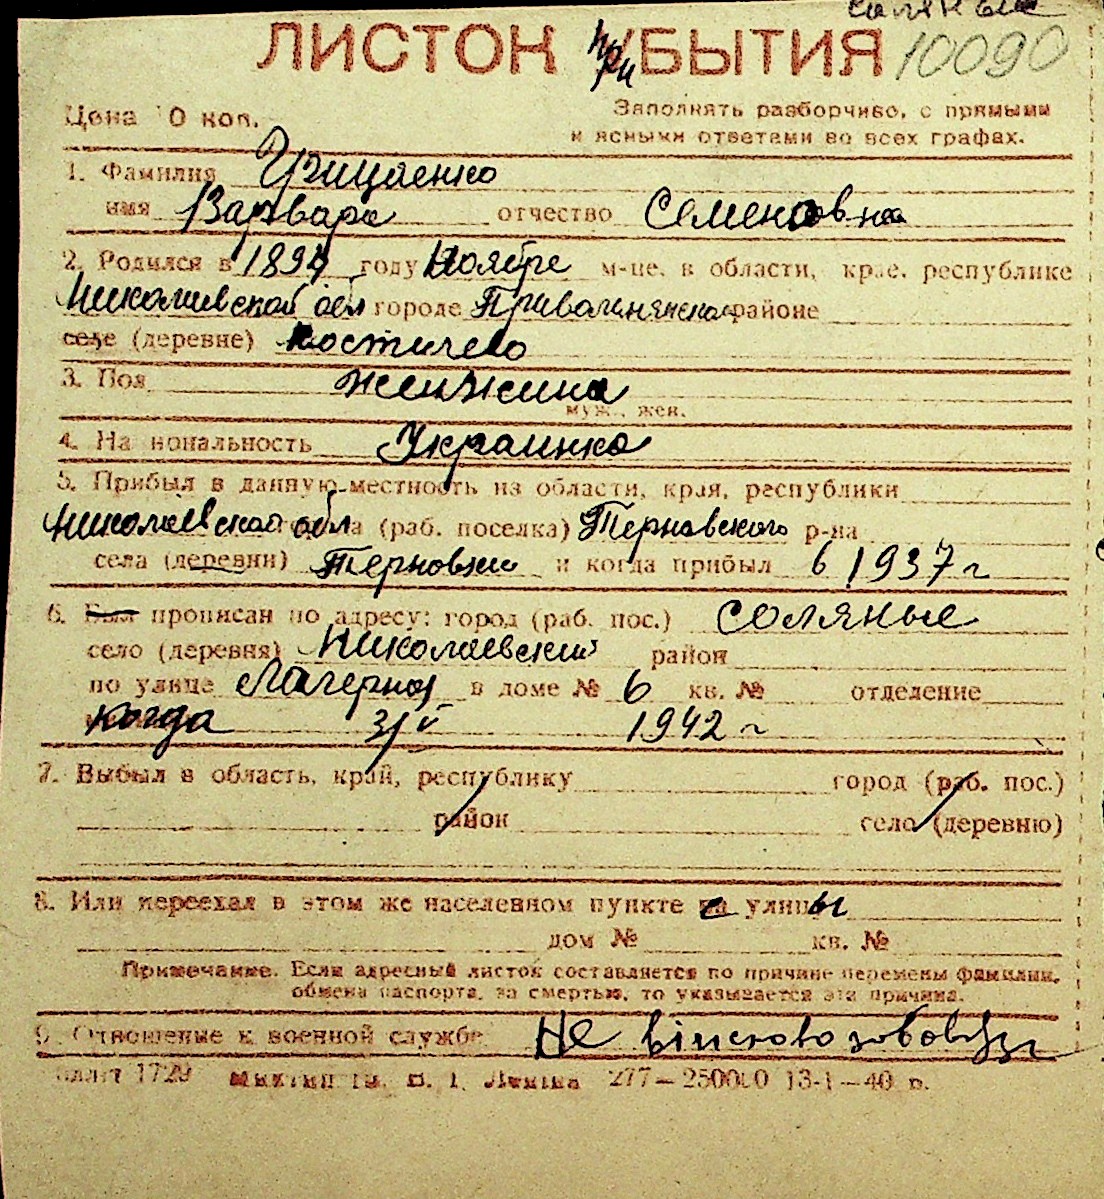 Соляные
ЛИСТОК при БЫТИЯ 10090
Цена 10 коп. Заполнять разборчиво, с прямыми
и ясными ответами во всех графах.
1. Фамилия Грищаенко
имя Варвара отчество Семеновна
2. Родился в 1894 году Ноябре м-це, в области, крае, республике
Николаевской обл городе Привольнянском районе
селе (деревне) Костичево
3. Пол женжина
муж., жен.
4. На иональность Украинка
5. Прибыл в данную местность из области, края, республики
Николаевской обл (раб. поселка) Терновского р-на
села (деревни) Терновки и когда прибыл в 1937 г
6. Был прописан по адресу: город (раб. пос.) Соляные
село (деревня) Николаевский район
по улице Лагерной в доме № 6 кв. № отделение
когда 3/V 1942 г
7. Выбыл в область, край, республику город (раб. пос.)
район село (деревню)
8. Или переехал в этом же населенном пункте с улицы
дом № кв. №
Примечание. Если адресный листок составляется по причине перемены фамилии,
обмена паспорта, за смертью, то указывается эта причина.
9. Отношение к военной службе Не
1729 Ленина 277—250000 13-1—40 р.